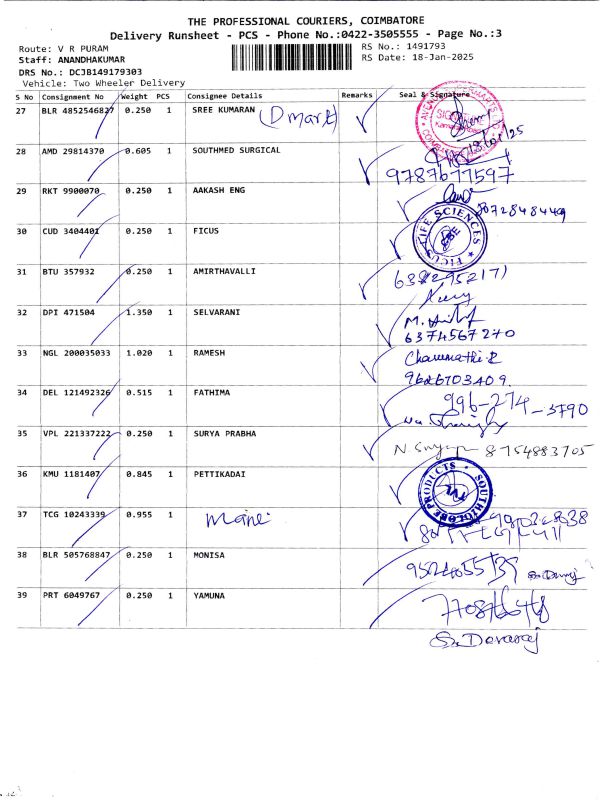 THE PROFESSIONAL COURIERS, COIMBATORE
Delivery Runsheet - PCS - Phone No.:0422-3505555 - Page No.:3
Route: V R PURAM RS No.: 1491793
Staff: ANANDHAKUMAR RS Date: 18-Jan-2025
DRS No.: DCJB149179303
Vehicle: Two Wheeler Delivery
S No Consignment No Weight PCS Consignee Details Remarks Seal & Signature
27 BLR 4852546827 0.250 1 SREE KUMARAN (D mart)
28 AMD 29814370 0.605 1 SOUTHMED SURGICAL
9787677597
29 RKT 9900070 0.250 1 AAKASH ENG
8728484449
30 CUD 3404401 0.250 1 FICUS FICUS LIFE SCIENCES CBE
31 BTU 357932 0.250 1 AMIRTHAVALLI
32 DPI 471504 1.350 1 SELVARANI
6374567270
33 NGL 200035033 1.020 1 RAMESH
9626703409.
34 DEL 121492326 0.515 1 FATHIMA 996-274-5790
35 VPL 221337222 0.250 1 SURYA PRABHA 8754883705
36 KMU 1181407 0.845 1 PETTIKADAI
37 TCG 10243339 0.955 1 Mani
38 BLR 505768847 0.250 1 MONISA
39 PRT 6049767 0.250 1 YAMUNA
S. Devaraj